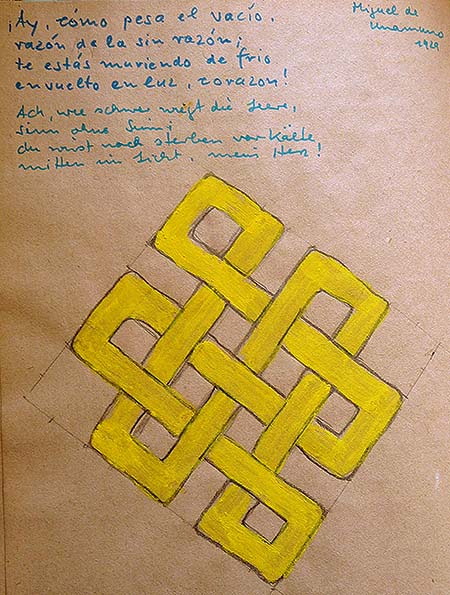 ¡Ay, cómo pesa el vacío,
razón de la sin razón;
te estás muriendo de frio
envuelto en luz, corazon!
Miguel de
Unamuno
1929
Ach, wie schwer wiegt die Leere,
Sinn ohne Sinn;
du wirst noch sterben vor Kälte
mitten im Licht, mein Herz!